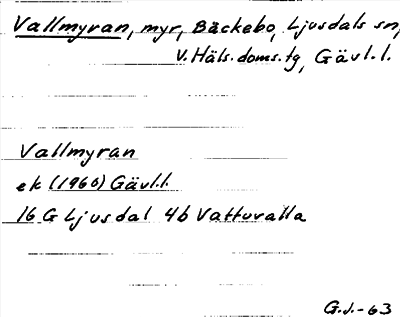 Vallmyran, myr, Bäckebo, Ljusdals sn,
V. Häls. doms. tg, Gävl. l.
Vallmyran
ek (1960) Gävl.l.
16 G Ljusdal 4b Vattuvalla
G.J.-63